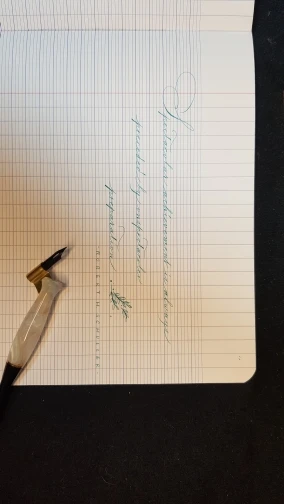 Spectacular achievement is always
preceded by unspectacular
preparation.
ROBERT H SCHULLER